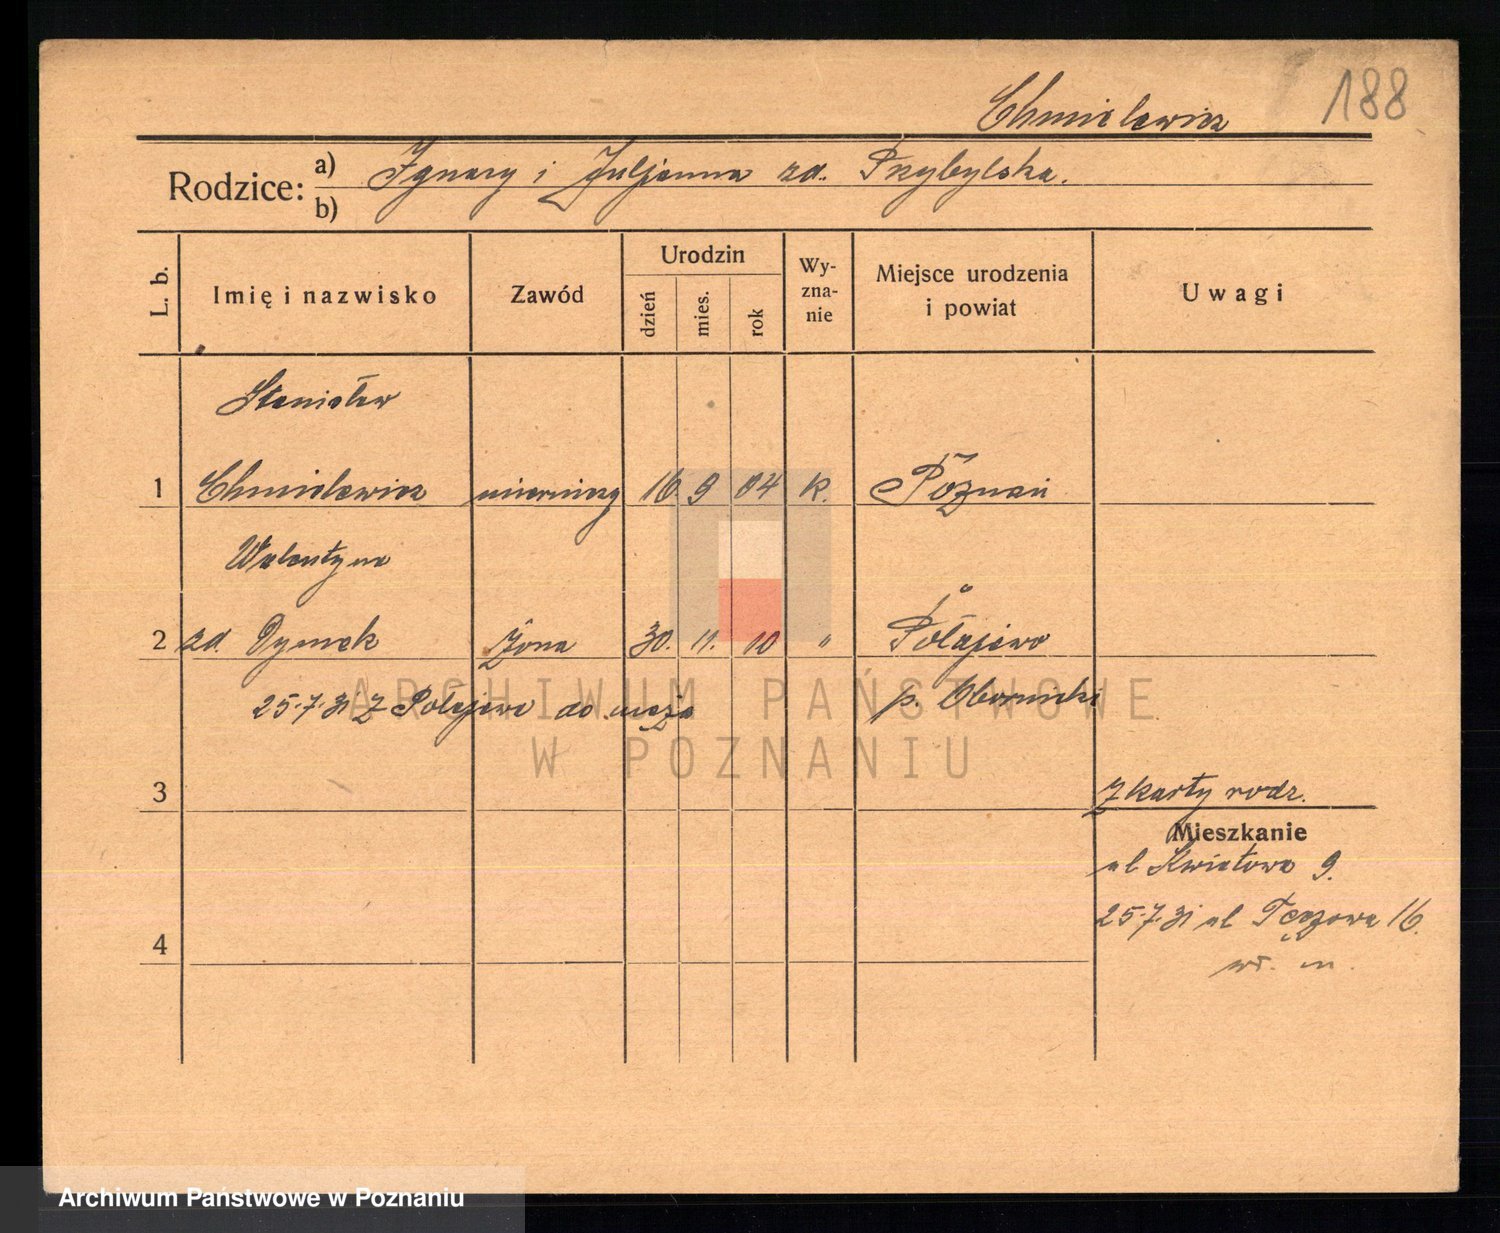 188
Chmielewicz
Rodzice: a) Ignacy i Juljanna zd. Przybylska.
b)
L. b. Imię i nazwisko Zawód Urodzin dzień mies. rok Wy-zna-nie Miejsce urodzenia i powiat Uwagi
Stanisław
1 Chmielewicz mierniczy 16. 9 04 k. Poznań
Walentyna
2 zd. Dymek Żona 30. 11. 10 " Połajewo
25.7.31 Z Połajewa do męża p. Obornicki
ARCHIWUM PAŃSTWOWE
W POZNANIU
3 Z karty rodz.
Mieszkanie
ul Kwiatowa 9.
25.7.31 ul Tęczowa 16.
4
wł. m.
Archiwum Państwowe w Poznaniu